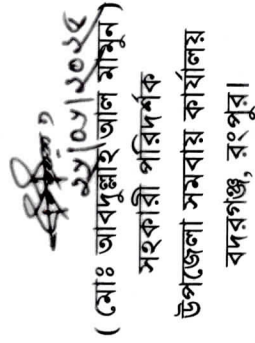 ( মোঃ আবদুল্লাহ আল মামুন )
সহকারী পরিদর্শক
উপজেলা সমবায় কার্যালয়
বদরগঞ্জ, রংপুর।